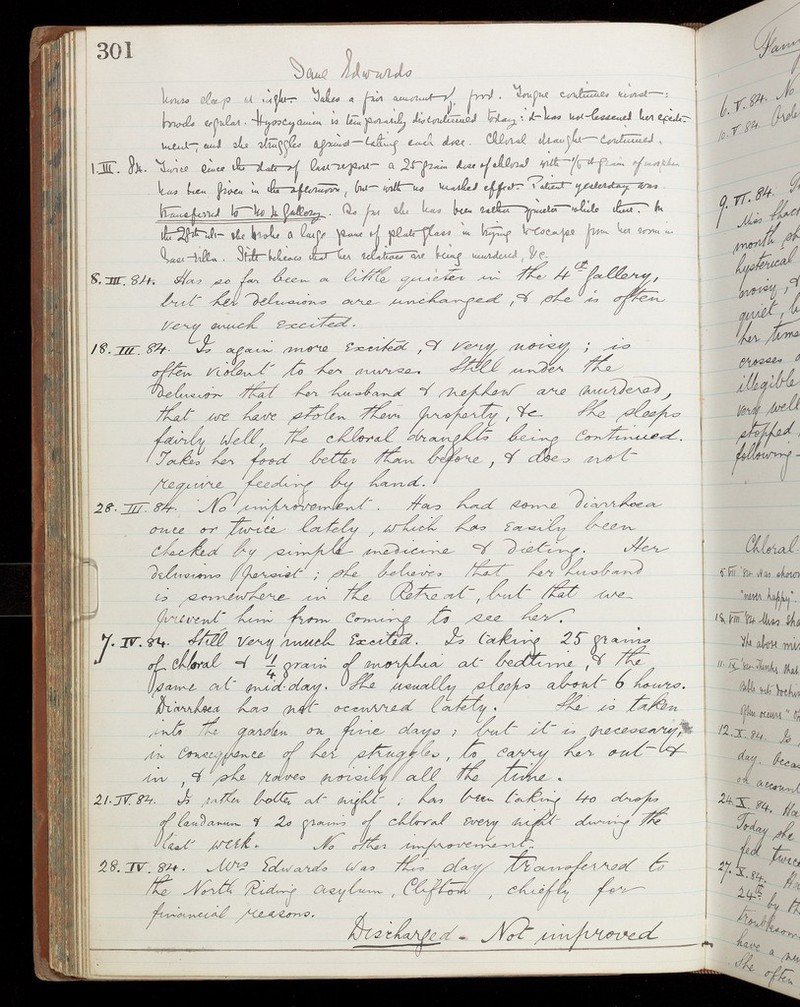 301
Jane Edwards
hours sleep at night. Takes a fair amount of food. Tongue continues moist:
bowels regular. Hyoscyamin is temporarily discontinued today: it has not lessened her excite-
ment, and she struggles against taking each dose. Chloral draught continued.
1. III. 84. Twice since the date of last report a 25 grain dose of chloral with 1/6th grain of morphia
has been given in the afternoon, but with no marked effect. Patient yesterday was
transferred to No 4 Gallery. So far she has been rather quieter while there. On
the 28th ult. she broke a large pane of plate glass in trying to escape from her room in
East Villa. Still believes that her relatives are being murdered, &c.
8. III. 84. Has so far been a little quieter in the 4th Gallery,
but her delusions are unchanged, & she is often
very much excited.
18. III. 84. Is again more excited, & very noisy; is
often violent to her nurses. Still under the
delusion that her husband & nephew are murdered,
that we have stolen their property, &c. She sleeps
fairly well, the chloral draughts being continued.
Takes her food better than before, & does not
require feeding by hand.
28. III. 84. No improvement. Has had some Diarrhoea
once or twice lately, which has easily been
checked by simple medicine & dieting. Her
delusions persist; she believes that her husband
is somewhere in the Retreat, but that we
prevent him from coming to see her.
7. IV. 84. Still very much excited. Is taking 25 grains
of chloral & 1/4 grain of morphia at bedtime, & the
same at mid-day. She usually sleeps about 6 hours.
Diarrhoea has not occurred lately. She is taken
into the garden on fine days; but it is necessary,
in consequence of her struggles, to carry her out &
in, & she raves noisily all the time.
21. IV. 84. Is rather better at night; has been taking 40 drops
of laudanum & 20 grains of chloral every night during the
last week. No other improvement.
28. IV. 84. Mrs Edwards was this day transferred to
the North Riding Asylum, Clifton, chiefly for
financial reasons.
Discharged - Not improved
6. V. 84. No
9. VI. 84.
Miss
month
hysterical
noisy, &
quiet,
her time
crosses
illegible
very well
stopped
following
Chloral
"never happy"
the above
12. X. 84. Is
day.
on account
24. X. 84. Ha
Today she
fed twice
27. X. 84. Ha
24th by th
troublesom
have a
She often